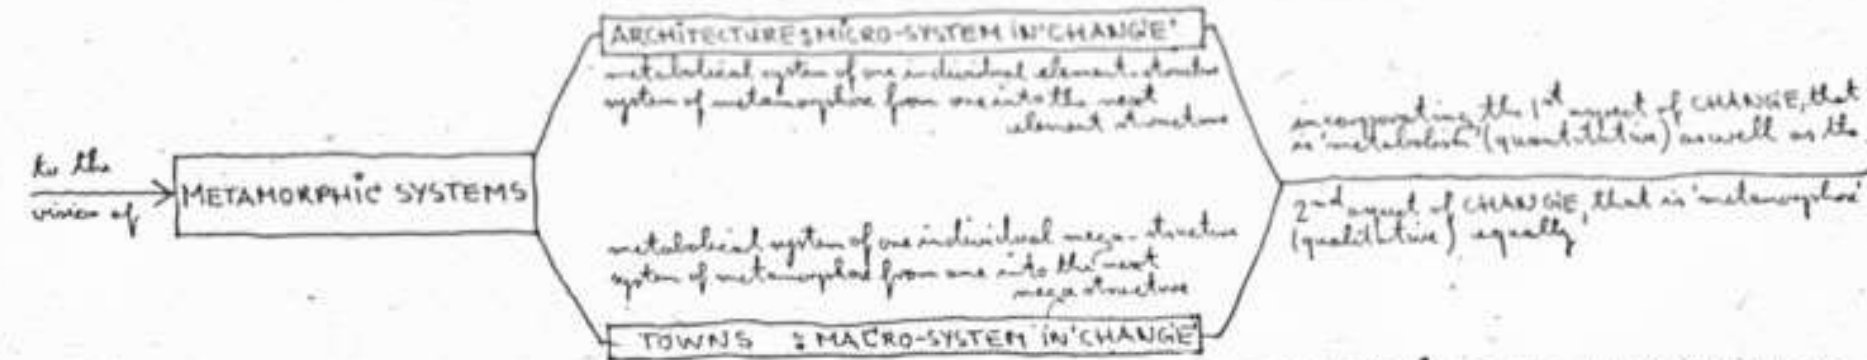 to the
vision of
METAMORPHIC SYSTEMS
ARCHITECTURE : MICRO-SYSTEM IN 'CHANGE'
metabolical system of one individual element-structure
system of metamorphose from one into the next
element structure
metabolical system of one individual mega-structure
system of metamorphose from one into the next
mega structure
TOWNS : MACRO-SYSTEM IN 'CHANGE'
incorporating the 1st aspect of CHANGE, that
is 'metabolism' (quantitative) as well as the
2nd aspect of CHANGE, that is 'metamorphose'
(qualitative) equally